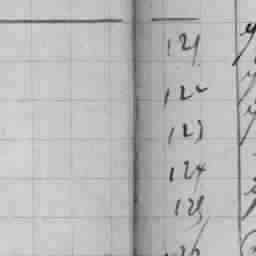 121
122
123
124
125
126